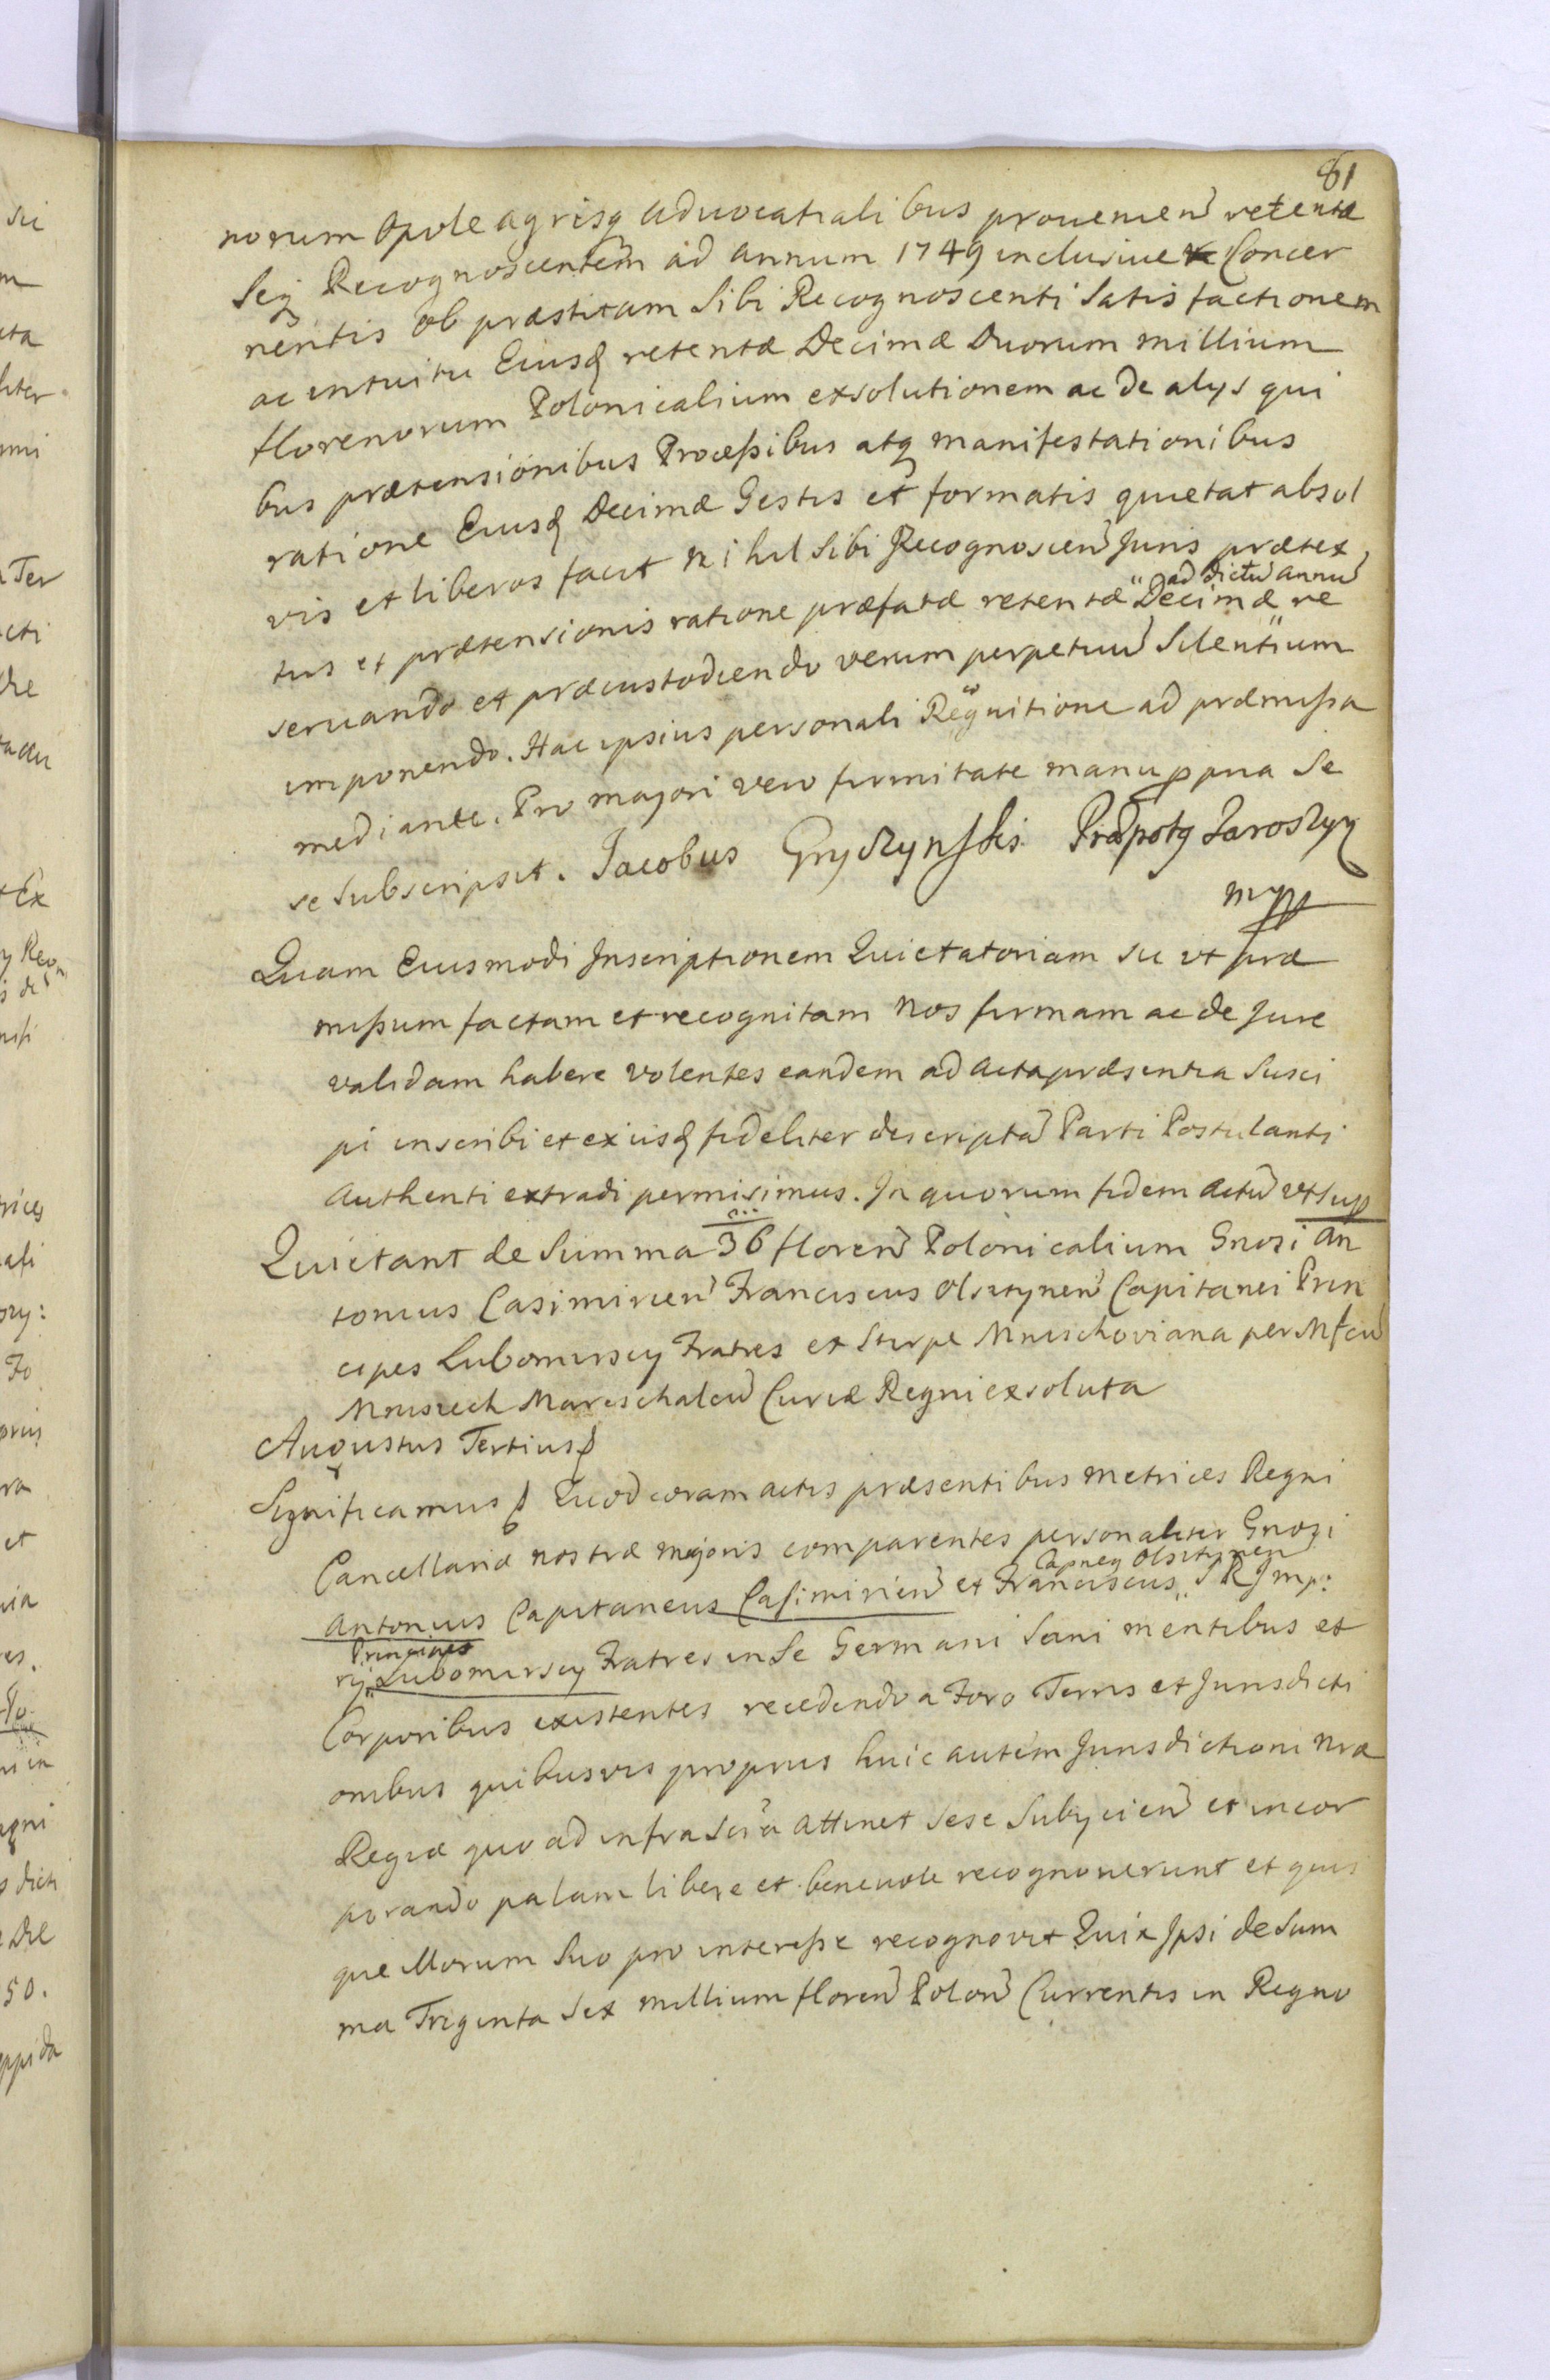 81
norum Opole agrisq advocatialibus provenien retentæ
Seq Recognoscentem ad annum 1749 inclusive Concer
nentis ob præstitam Sibi Recognoscenti Satisfactionem
ac intuitu Eiusd retentæ Decimæ Duorum millium
florenorum Polonicalium exsolutionem ac de alys qui
bus prætensionibus Proceßibus atq manifestationibus
ratione Eiusd Decimæ Gestis et formatis quietat absol
vis et liberos facit nihil Sibi Recognoscen Juris prætex
ad dictu annu
tus et prætensionis ratione præfatæ retentæ Decimæ re
servando et præcustodiendo verum perpetuu Silentium
imponendo. Hac ipsius personali Regnitione ad præmißa
mediante. Pro majori vero firmitate manu ppria Se
se Subscripsit. Jacobus Gryczynski Præpotq Jaroszyn
mpp
Quam Eiusmodi Inscriptionem Quietatoriam Sic ut præ
mißum factam et recognitam nos firmam ac de Jure
validam habere volentes eandem ad acta præsentia Susci
pi inscribi et ex iisd fideliter descripta Parti Postulanti
authenti extradi permisimus. In quorum fidem actu ut Sup
Quietant de Summa 36 floren Polonicalium Gnosi An
tonius Casimirien Franciscus Olsztynen Capitanei Prin
cipes Lubomirscy Fratres et Stirpe Mniszchoviana per Mfcu
Mniszech Mareschalcu Curiæ Regni exsoluta
Augustus Tertius
Significamus Quod coram actis præsentibus Metrices Regni
Cancellariæ nostræ majoris comparentes personaliter Gnosi
Capney Olsztynen
Antonius Capitaneus Casimirien et Franciscus S R Imp:
Principes
ry Lubomirscy Fratres in Se Germani Sani mentibus et
Corporibus existentes recedendo a Foro Terris et Jurisdicti
onibus quibusvis proprus huic autem Jurisdictioni nræ
Regiæ quo ad infra Scra attinet Sese Subycien et incor
porando palam libere et benevole recognoverunt et quis
que illorum Suo pro intereße recognovit Quia Ipsi de Sum
ma Triginta Sex millium floren Polon Currentis in Regno